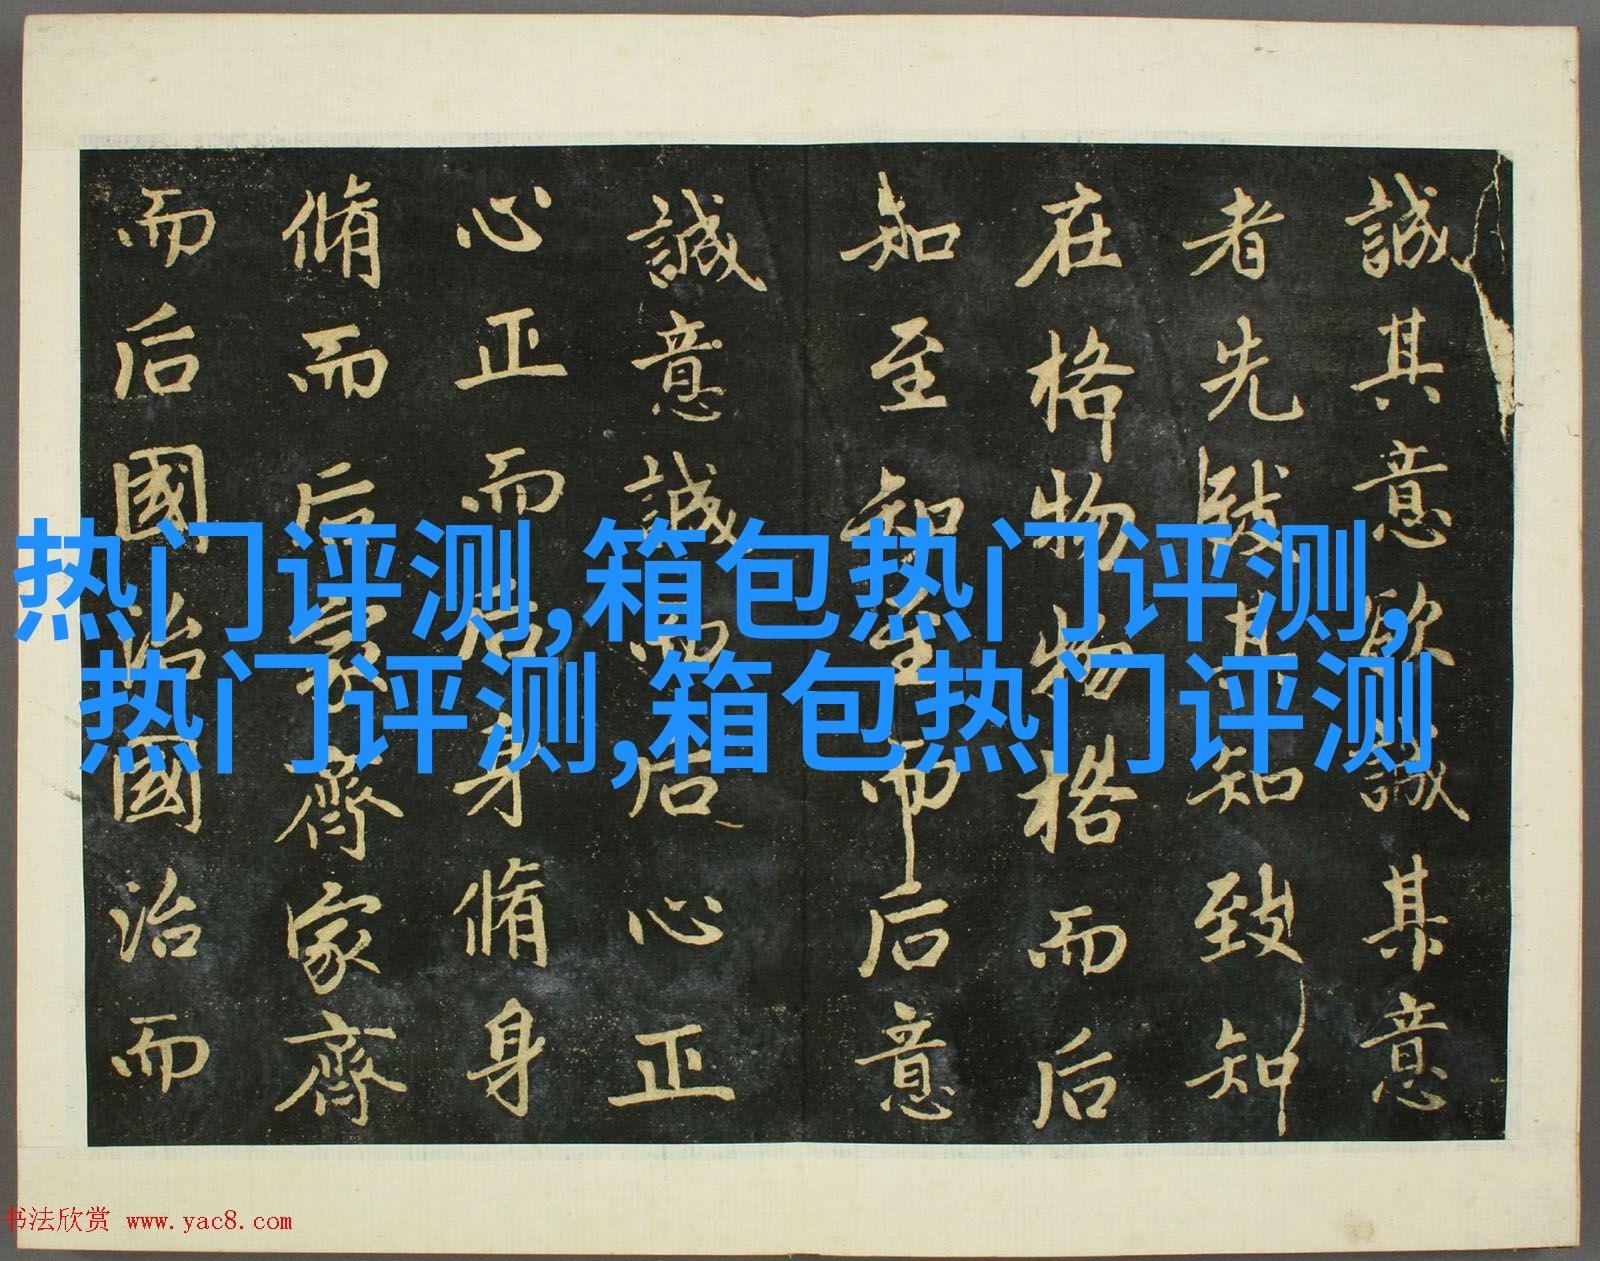 誠其意欲誠其意
者先致其知致知
在格物物格而后
知至知至而后意
誠意誠而后心正
心正而后身脩身
脩而后家齊家齊
而后國治國治而
热门评测,箱包热门评测,
热门评测,箱包热门评测
书法欣赏 www.yac8.com